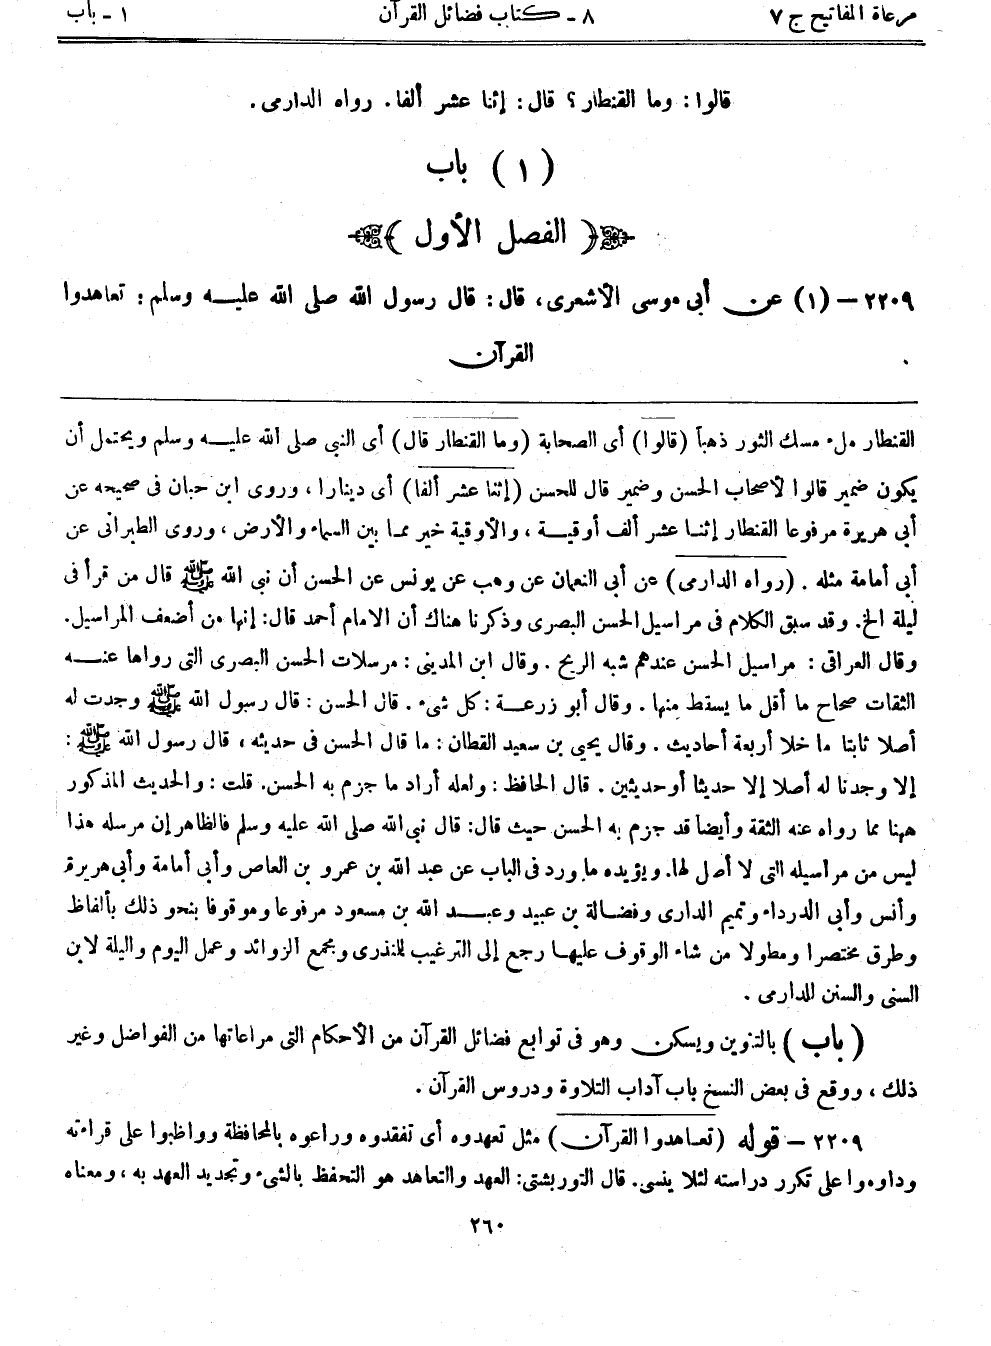 مرعاة المفاتيح ج ٧ ٨ - كتاب فضائل القرآن ١ - باب
قالوا: وما القنطار؟ قال: إثنا عشر ألفا. رواه الدارمى.
(١) باب
﴿ الفصل الأول ﴾
٢٢٠٩ – (١) عن أبى موسى الأشعرى، قال: قال رسول الله صلى الله عليه وسلم: تعاهدوا
القرآن
القنطار ملء مسك الثور ذهبا (قالوا) أى الصحابة (وما القنطار قال) أى النبى صلى الله عليه وسلم ويحتمل أن
يكون ضمير قالوا لأصحاب الحسن وضمير قال للحسن (إثنا عشر ألفا) أى دينارا، وروى ابن حبان فى صحيحه عن
أبى هريرة مرفوعا القنطار إثنا عشر ألف أوقية، والأوقية خير مما بين السماء والأرض، وروى الطبرانى عن
أبى أمامة مثله. (رواه الدارمى) عن أبى النعمان عن وهب عن يونس عن الحسن أن نبى الله ﷺ قال من قرأ فى
ليلة الخ. وقد سبق الكلام فى مراسيل الحسن البصرى وذكرنا هناك أن الامام أحمد قال: إنها من أضعف المراسيل.
وقال العراقى: مراسيل الحسن عندهم شبه الريح. وقال ابن المدينى: مرسلات الحسن البصرى التى رواها عنه
الثقات صحاح ما أقل ما يسقط منها. وقال أبو زرعة: كل شىء. قال الحسن: قال رسول الله ﷺ وجدت له
أصلا ثابتا ما خلا أربعة أحاديث. وقال يحيى بن سعيد القطان: ما قال الحسن فى حديثه، قال رسول الله ﷺ:
إلا وجدنا له أصلا إلا حديثا أو حديثين. قال الحافظ: ولعله أراد ما جزم به الحسن. قلت: والحديث المذكور
ههنا مما رواه عنه الثقة وأيضا قد جزم به الحسن حيث قال: قال نبى الله صلى الله عليه وسلم فالظاهر إن مرسله هذا
ليس من مراسيله التى لا أصل لها. ويؤيده ما ورد فى الباب عن عبد الله بن عمرو بن العاص وأبى أمامة وأبى هريرة
وأنس وأبى الدرداء وتميم الدارى وفضالة بن عبيد وعبد الله بن مسعود مرفوعا وموقوفا بنحو ذلك بألفاظ
وطرق مختصرا ومطولا من شاء الوقوف عليها رجع إلى الترغيب للمنذرى ومجمع الزوائد وعمل اليوم والليلة لابن
السنى والسنن للدارمى.
(باب) بالتنوين ويسكن وهو فى توابع فضائل القرآن من الأحكام التى مراعاتها من الفواضل وغير
ذلك، ووقع فى بعض النسخ باب آداب التلاوة ودروس القرآن.
٢٢٠٩ – قوله (تعاهدوا القرآن) مثل تعهدوه أى تفقدوه وراعوه بالمحافظة وواظبوا على قراءته
وداوموا على تكرر دراسته لئلا ينسى. قال التوربشتى: العهد والتعاهد هو التحفظ بالشىء وتجديد العهد به، ومعناه
٢٦٠